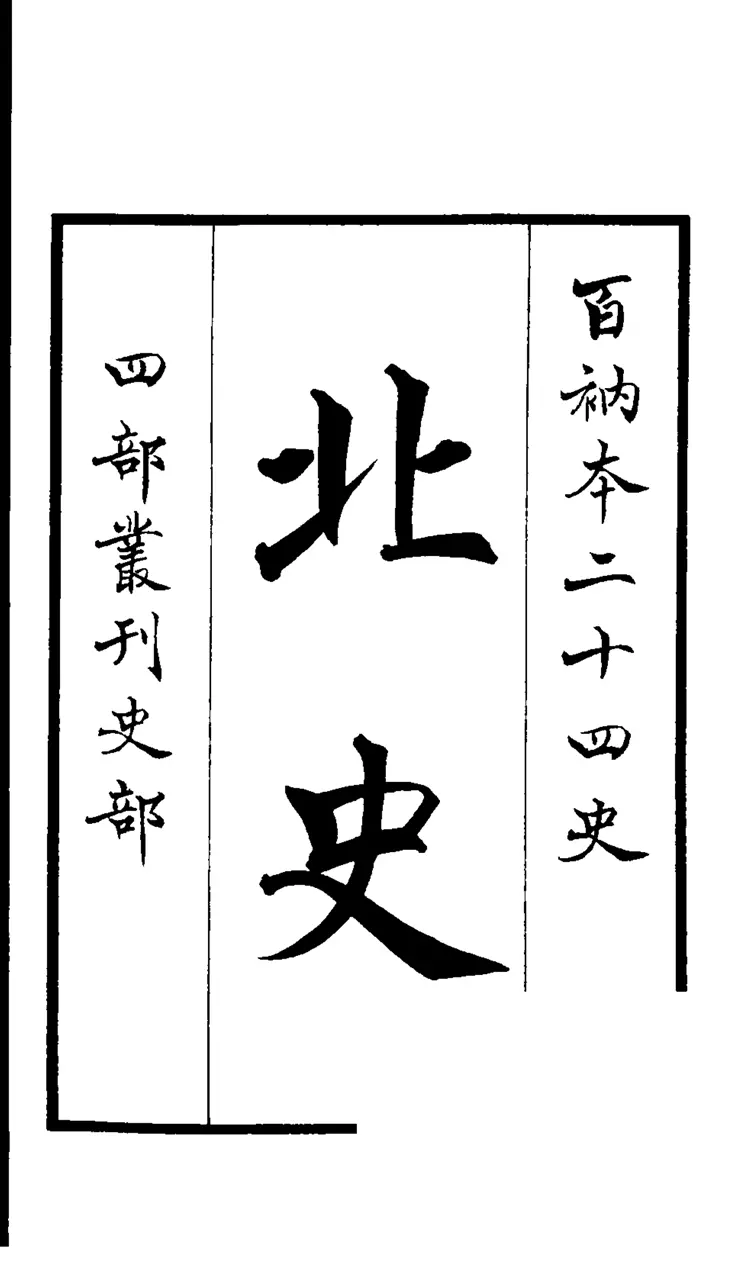 百衲本二十四史
北史
四部叢刊史部